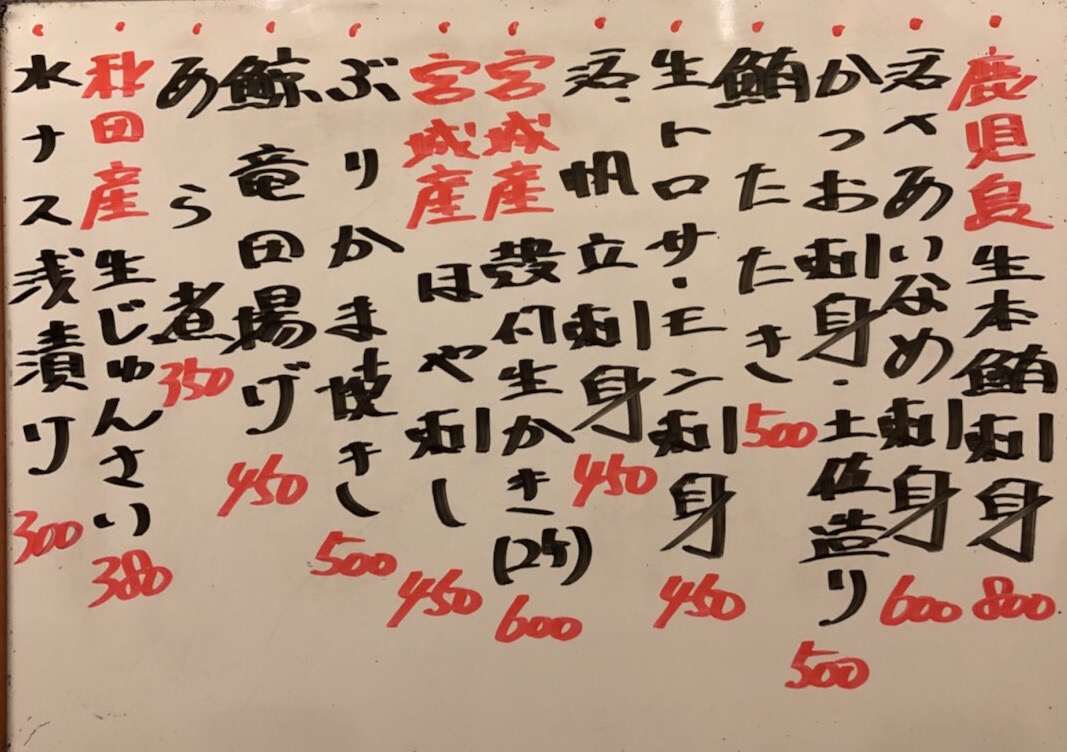 鹿児島 生本鮪刺身 800
活〆あいなめ刺身 600
かつお刺身・土佐造り 500
鮪たたき 500
生トロサーモン刺身 450
活・帆立刺身 450
宮城産 殻付生かき(2ケ) 600
宮城産 ほや刺し 450
ぶりかま焼き 500
鯨竜田揚げ 450
あら煮 350
秋田産 生じゅんさい 380
水ナス浅漬り 300